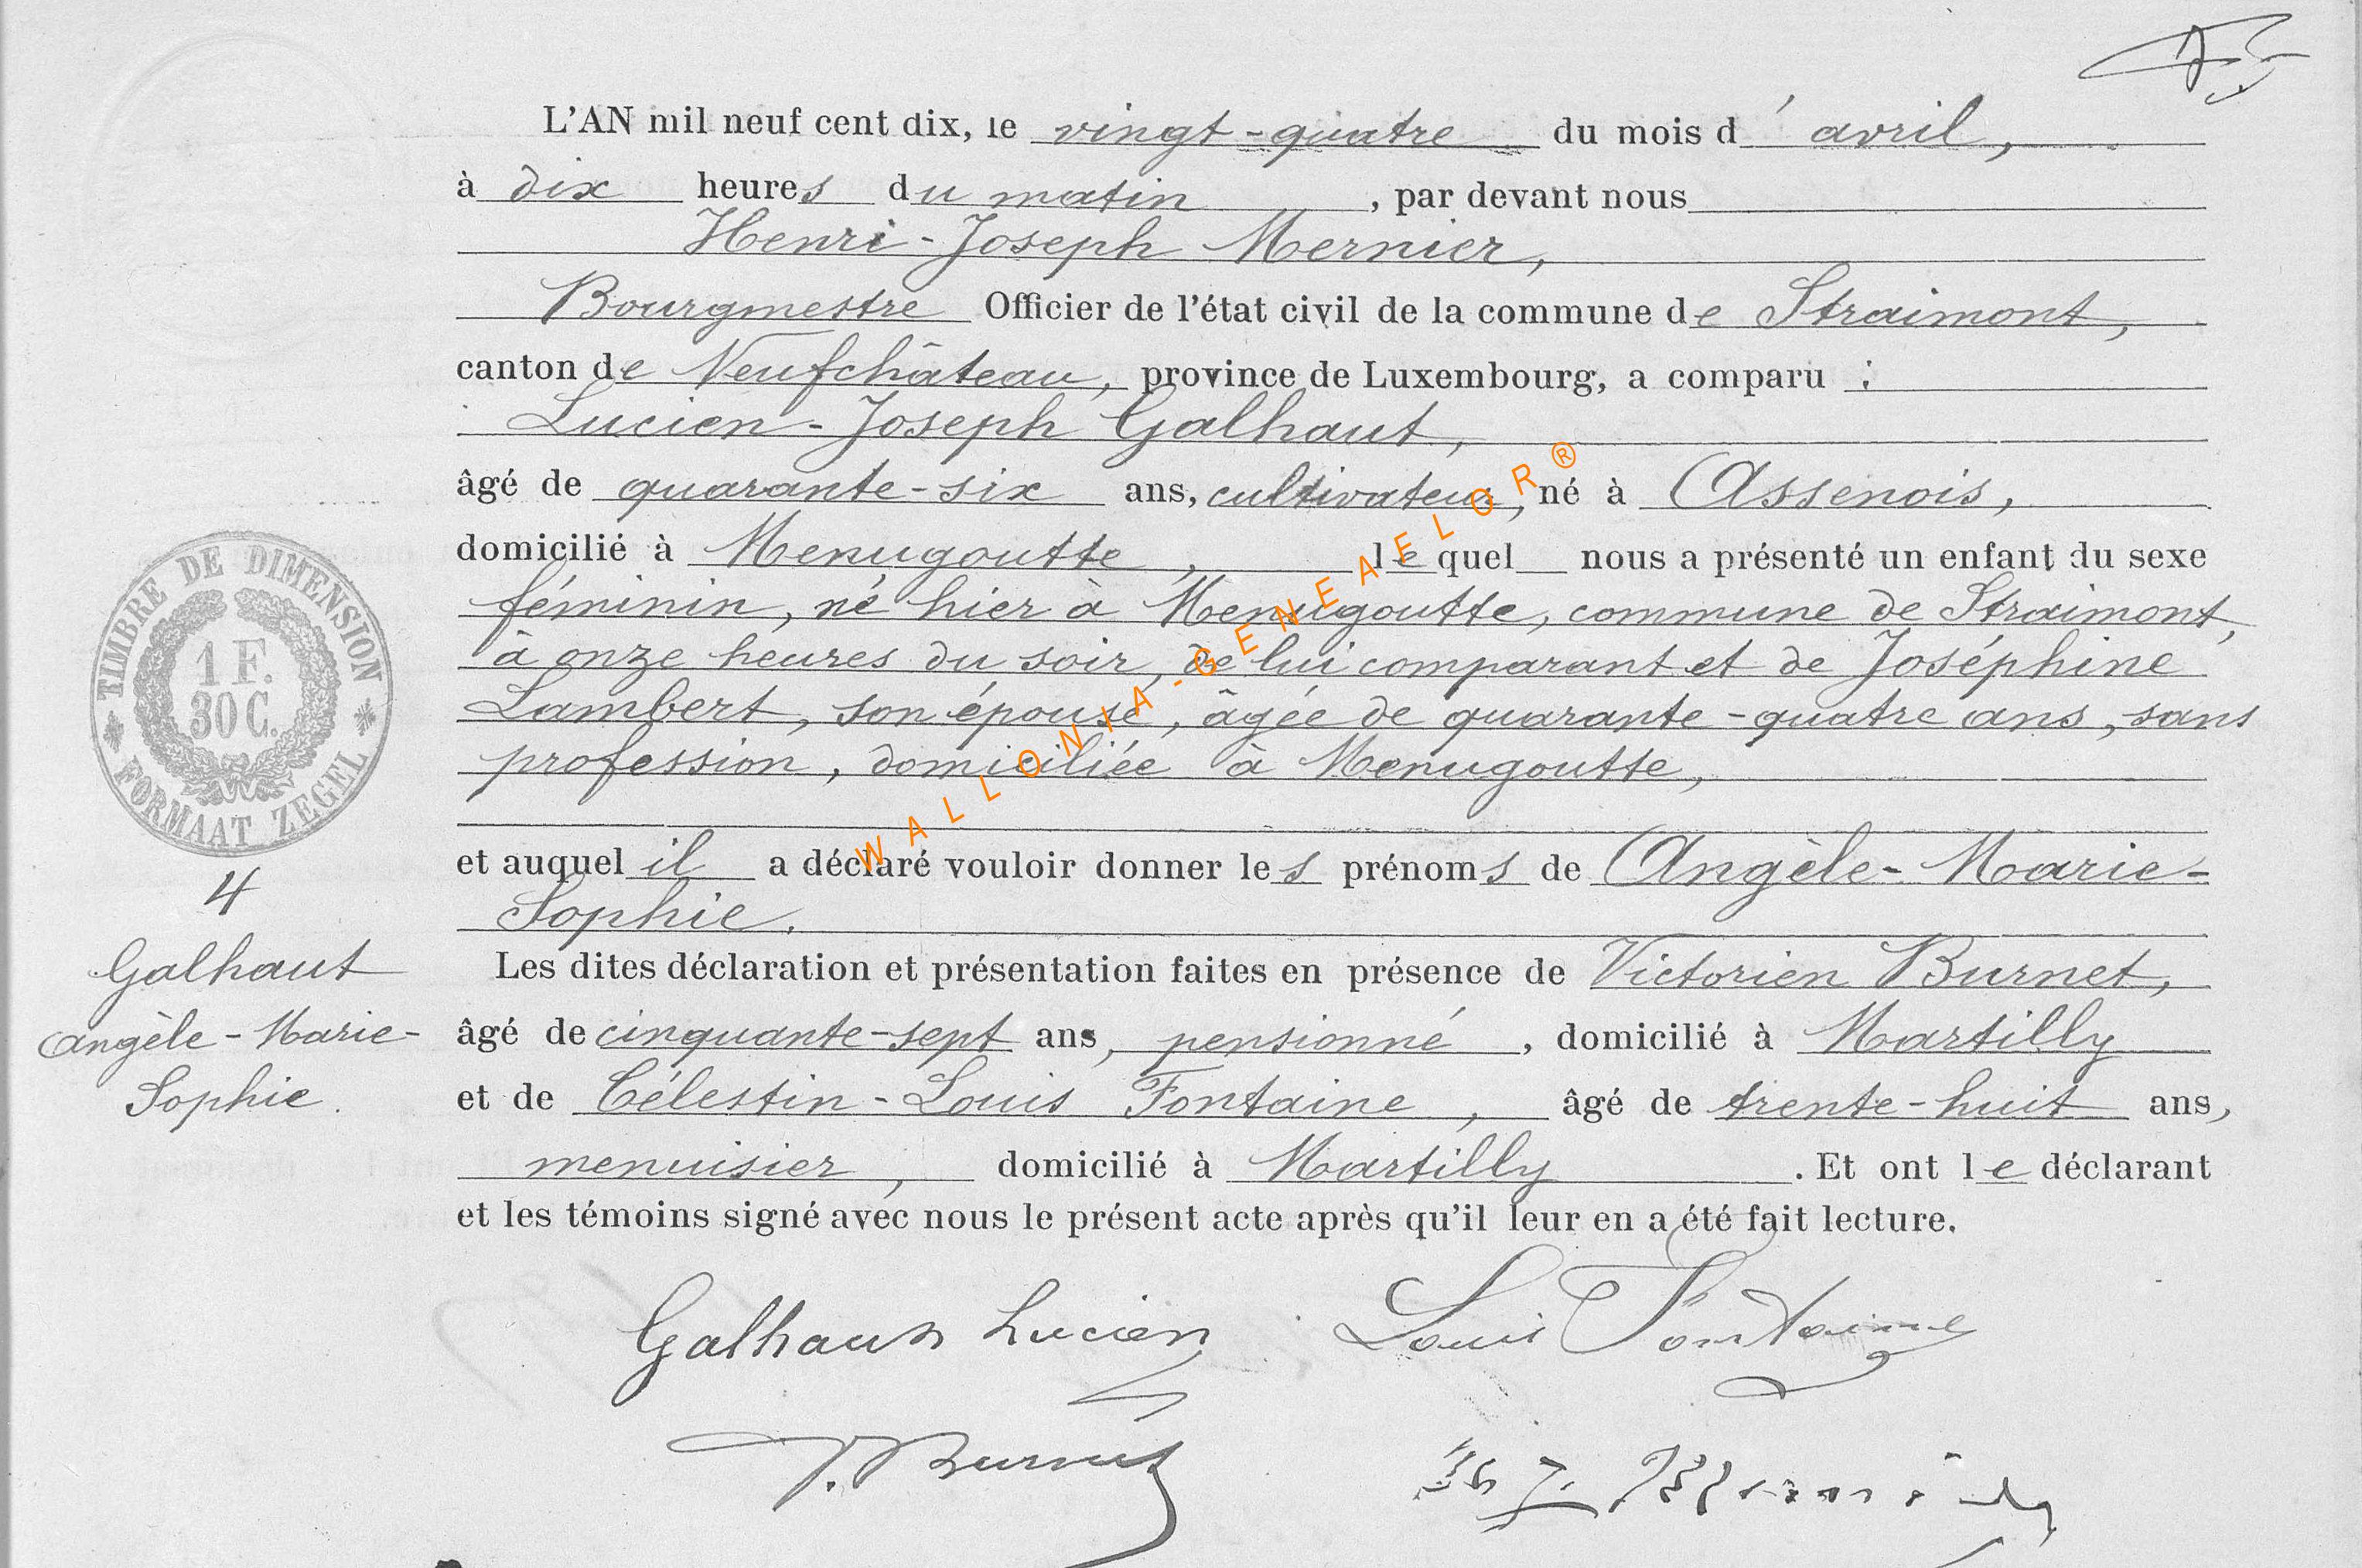 L'AN mil neuf cent dix, le vingt-quatre du mois d'avril,
à dix heures du matin, par devant nous
Henri-Joseph Mernier,
Bourgmestre Officier de l'état civil de la commune de Straimont,
canton de Neufchâteau, province de Luxembourg, a comparu :
Lucien-Joseph Galhaut,
âgé de quarante-six ans, cultivateur, né à Assenois,
domicilié à Menugoutte, lequel nous a présenté un enfant du sexe
féminin, né hier à Menugoutte, commune de Straimont,
à onze heures du soir, de lui comparant et de Joséphine
Lambert, son épouse, âgée de quarante-quatre ans, sans
profession, domiciliée à Menugoutte,
et auquel il a déclaré vouloir donner les prénoms de Angèle-Marie-
Sophie.
Les dites déclaration et présentation faites en présence de Victorien Burnet,
âgé de cinquante-sept ans, pensionné, domicilié à Martilly
et de Célestin-Louis Fontaine, âgé de trente-huit ans,
menuisier, domicilié à Martilly. Et ont le déclarant
et les témoins signé avec nous le présent acte après qu'il leur en a été fait lecture.
Galhaut Lucien
Louis Fontaine
V. Burnet
TIMBRE DE DIMENSION
1 F.
30 C.
FORMAAT ZEGEL
4
Galhaut
Angèle-Marie-
Sophie.
WALLONIA-GENEAELOR®